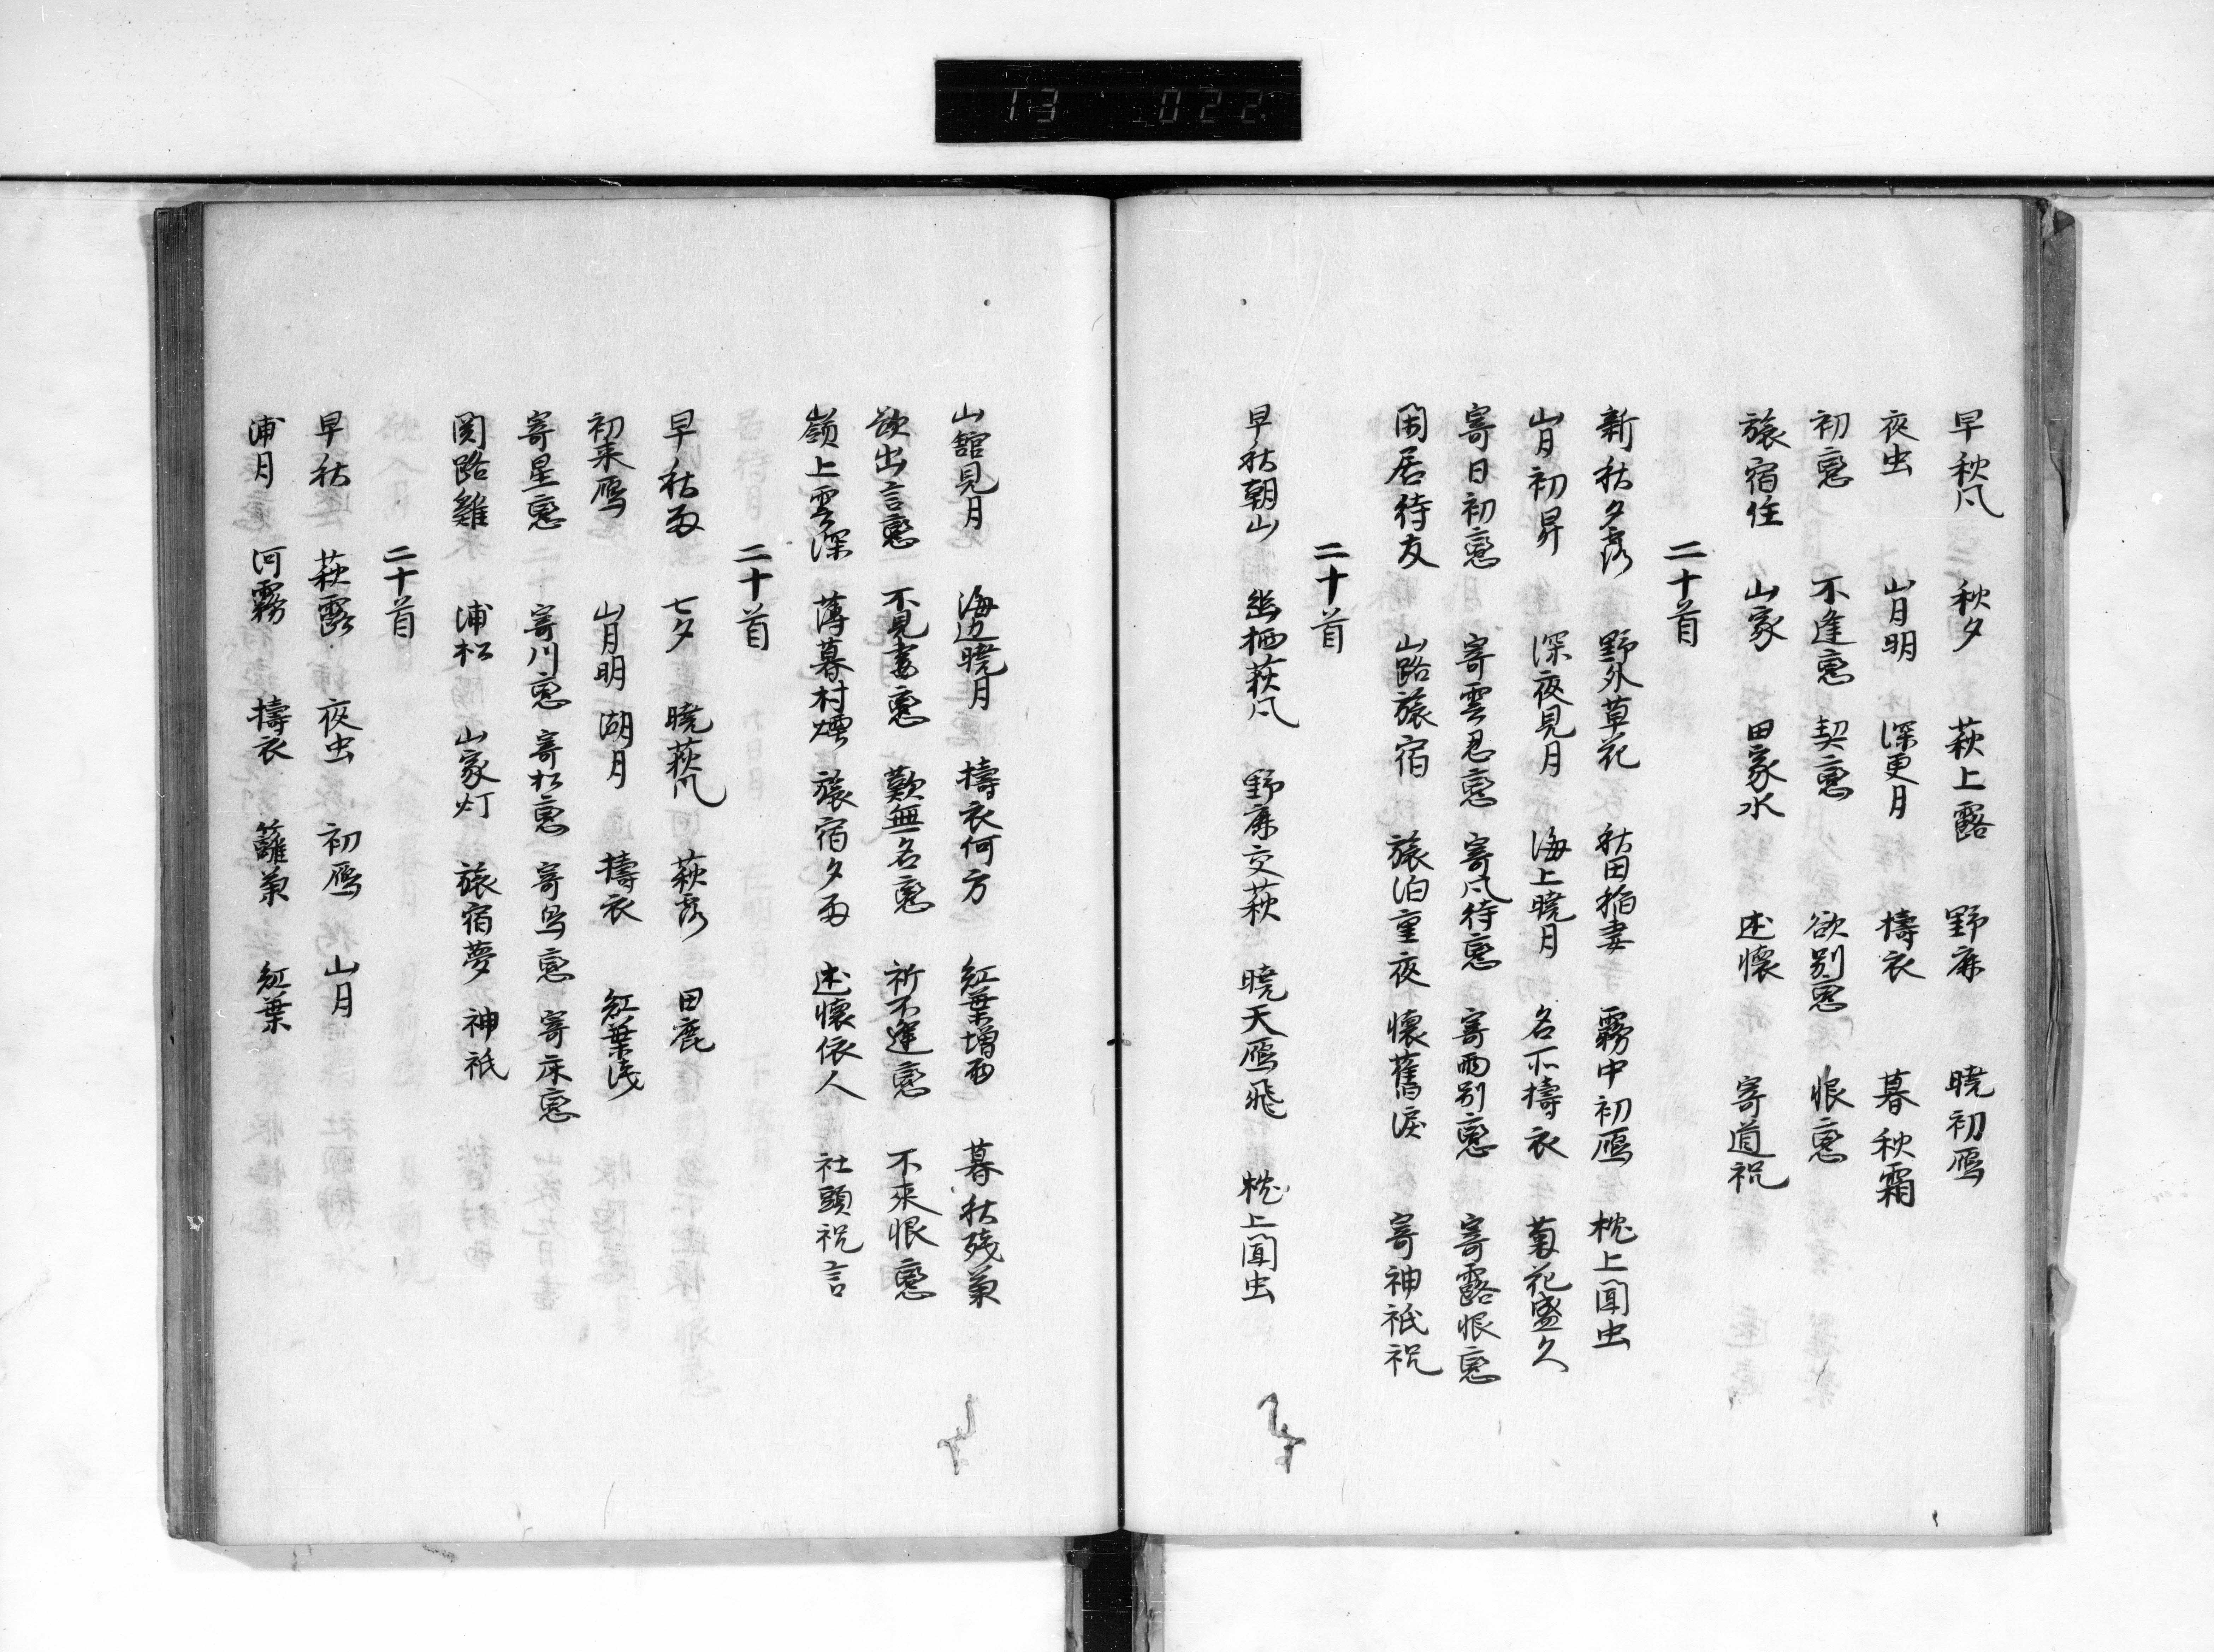 13 022
早秋風 秋夕 萩上露 野鹿 暁初鴈
夜虫 山月明 深更月 擣衣 暮秋霜
初戀 不逢戀 契戀 欲別戀 恨戀
旅宿住 山家 田家水 述懐 寄道祝
二十首
新秋夕露 野外草花 秋田稲妻 霧中初鴈 枕上聞虫
山月初昇 深夜見月 海上暁月 名所擣衣 菊花盛久
寄日初戀 寄雲忍戀 寄風待戀 寄雨別戀 寄露恨戀
閑居待友 山路旅宿 旅泊重夜 懐舊涙 寄神祇祝
二十首
早秋朝山 幽栖萩風 野鹿交萩 暁天鴈飛 枕上聞虫
山舘見月 海邊暁月 擣衣何方 紅葉増雨 暮秋残菊
欲出言戀 不見書戀 歎無名戀 祈不逢戀 不来恨戀
嶺上雲深 薄暮村煙 旅宿夕雨 述懐依人 社頭祝言
二十首
早秋雨 七夕 暁萩風 萩露 田鹿
初来鴈 山月明 湖月 擣衣 紅葉浅
寄星戀 寄川戀 寄松戀 寄鳥戀 寄床戀
関路雞 浦松 山家灯 旅宿夢 神祇
二十首
早秋 萩露 夜虫 初鴈 山月
浦月 河霧 擣衣 籬菊 紅葉